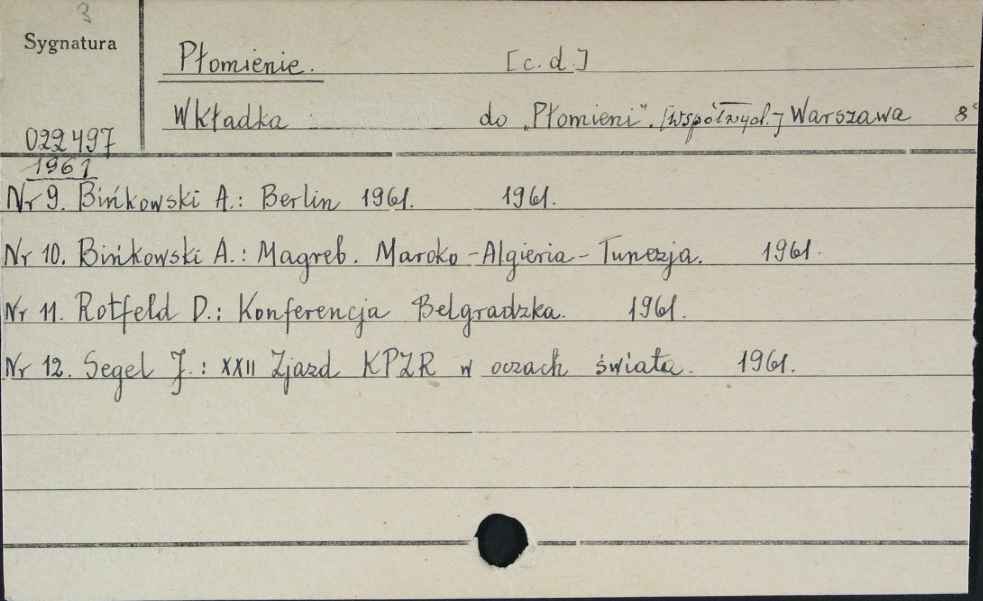 3
Sygnatura
Płomienie. [c.d.]
Wkładka do „Płomieni”. [Współwyd.] Warszawa 8°
022497
1961
Nr 9. Bińkowski A.: Berlin 1961. 1961.
Nr 10. Bińkowski A.: Magreb. Maroko-Algieria-Tunezja. 1961.
Nr 11. Rotfeld D.: Konferencja Belgradzka. 1961.
Nr 12. Segel J.: XXII Zjazd KPZR w oczach świata. 1961.